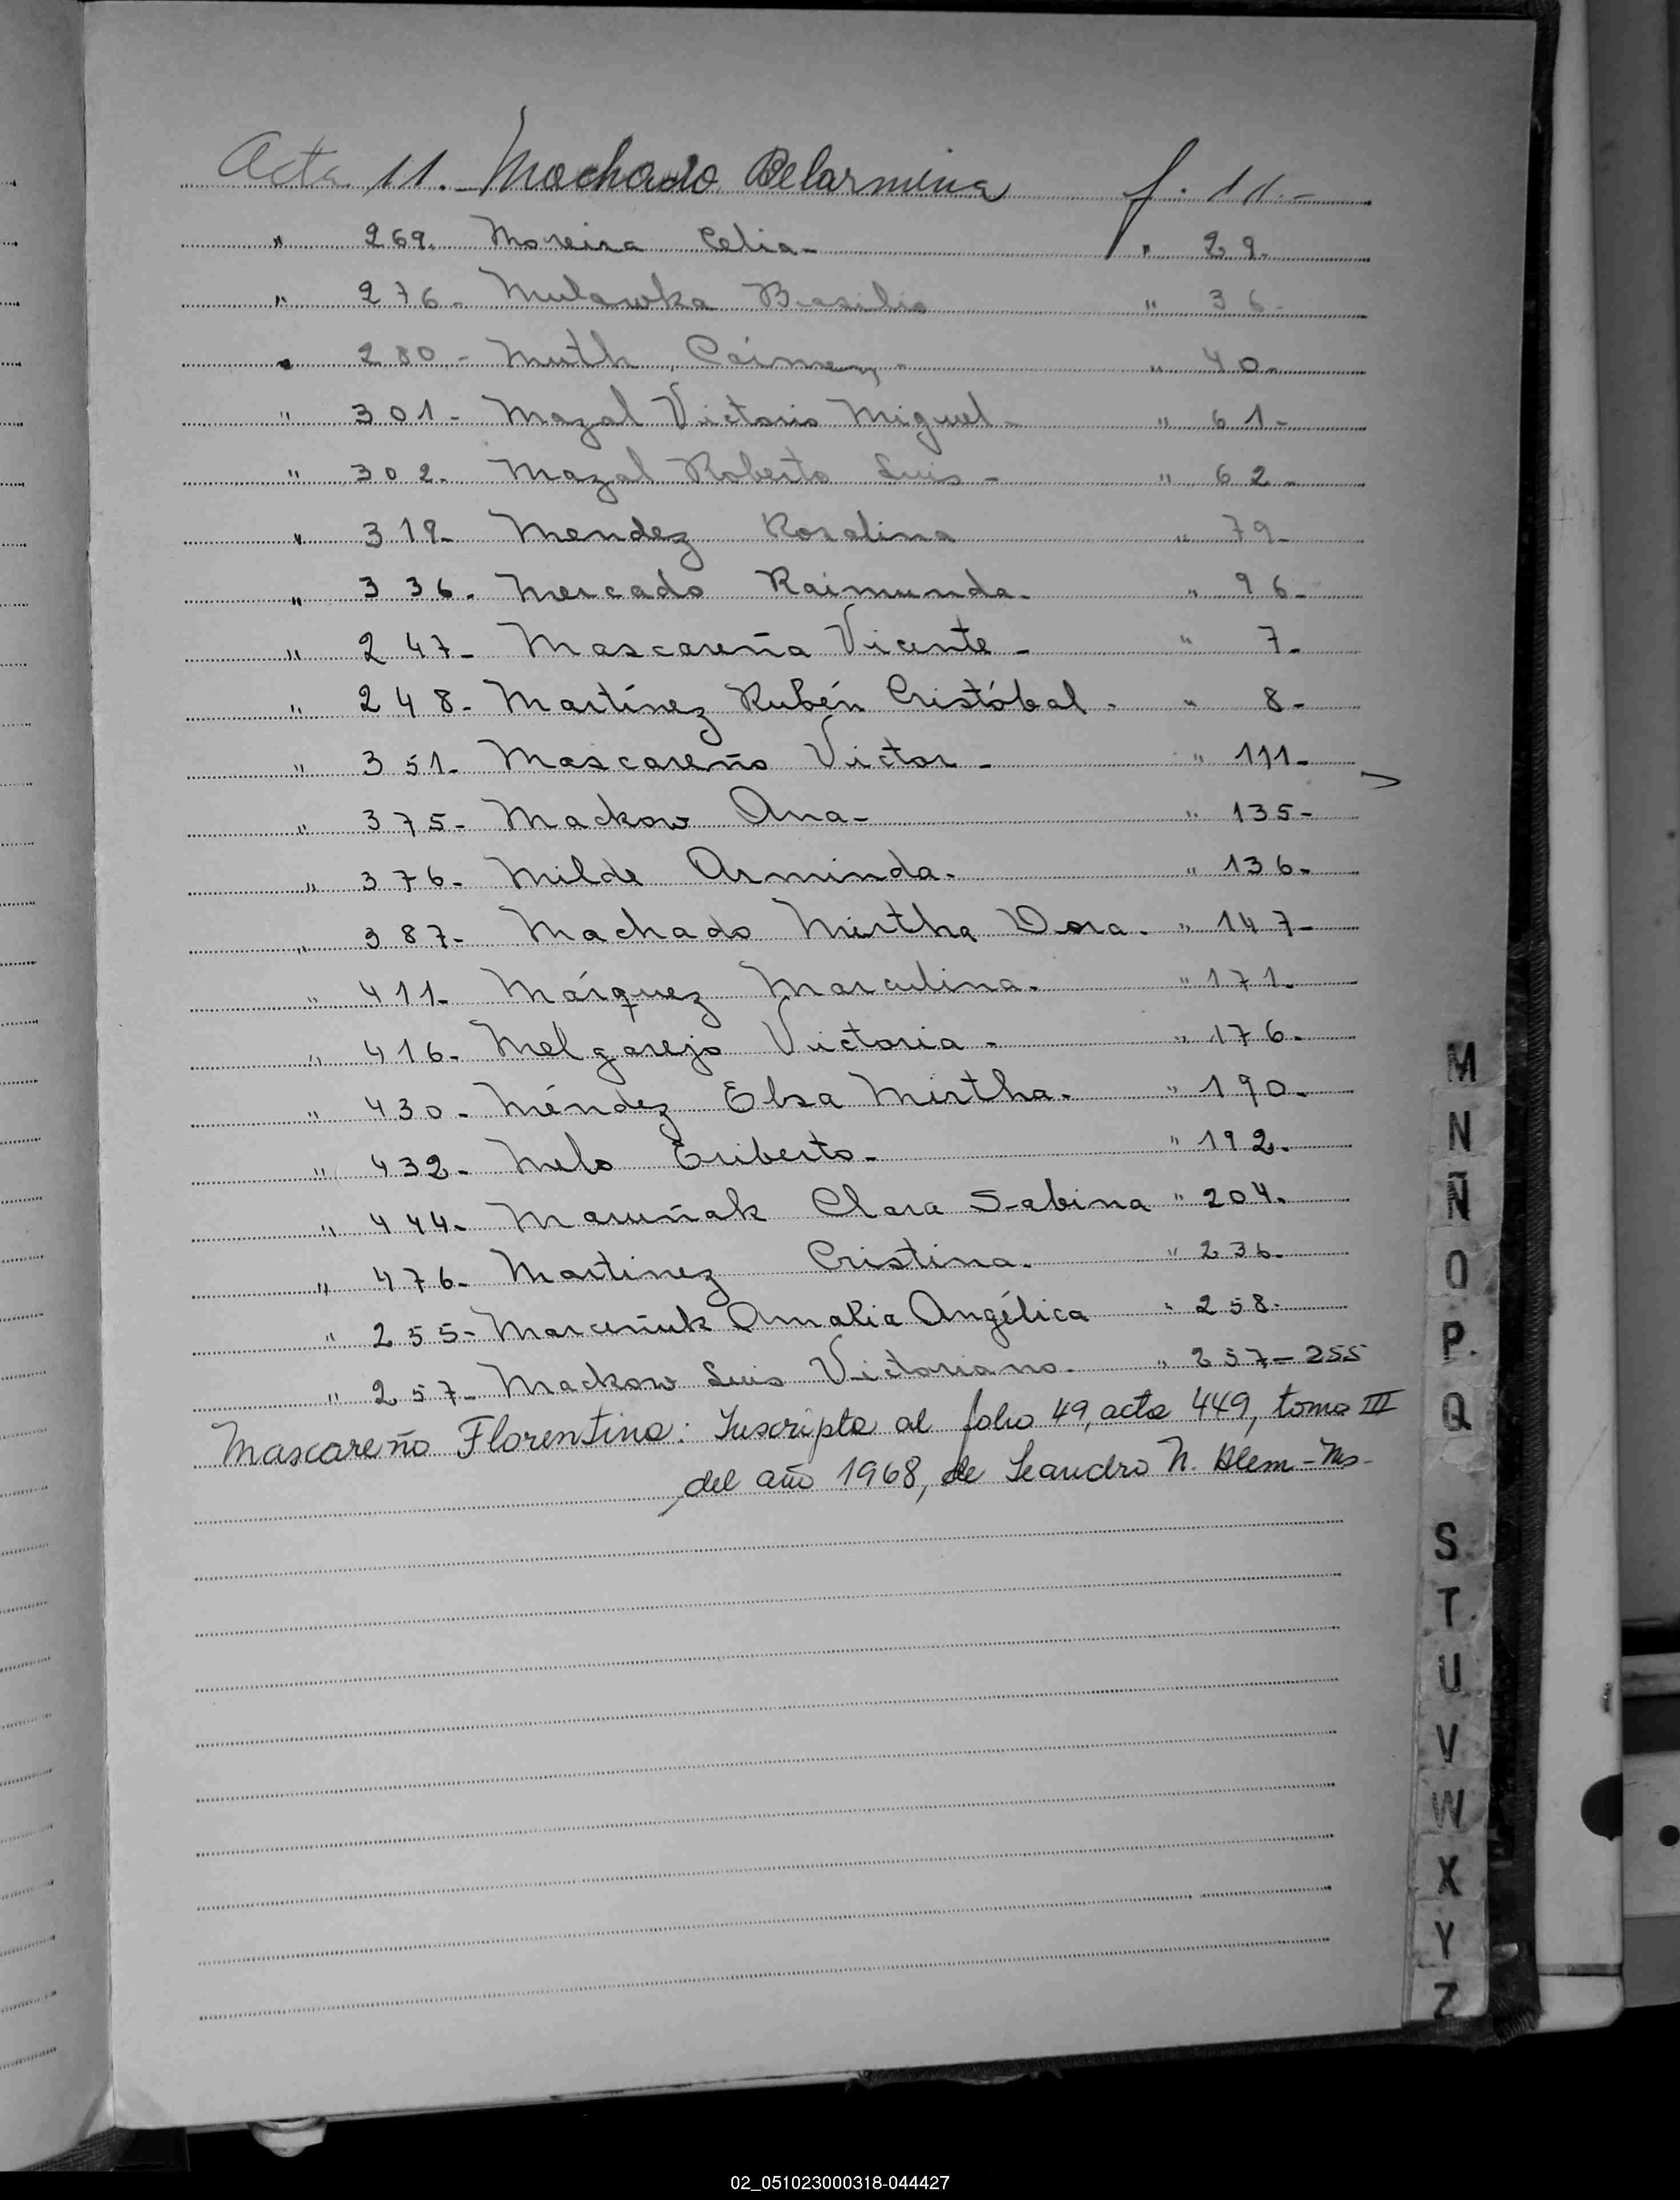 Acta 11.- Machado Belarmina f. 11.-
" 269. Moreira Celia- " 29-
" 276- Mulawka Basilio " 36-
" 280- Muth, - " 40-
" 301- Mazal Victorio Miguel- " 61-
" 302- Mazal Roberto Luis- " 62-
" 319- Mendez Rosalina " 79-
" 336. Mercado Raimunda. " 96-
" 247- Mascareña Vicente- " 7-
" 248- Martínez Rubén Cristóbal. " 8-
" 351- Mascareño Victor- " 111-
" 375- Mackow Ana- " 135-
" 376- Milde Arminda. " 136-
" 387- Machado Mirtha Dora. " 147-
" 411- Márquez Marculina. " 171-
" 416- Melgarejo Victoria- " 176-
" 430- Méndez Elsa Mirtha. " 190-
" 432- Melo Eriberto- " 192-
" 444- Maruñak Clara Sabina " 204.
" 476- Martinez Cristina. " 236-
" 255- Marceñuk Amalia Angélica " 258-
" 257- Mackow Luis Victoriano- " 257-255
Mascareño Florentino: Inscripta al folio 49, acta 449, tomo III
del año 1968, de Leandro N. Alem-Ms-
M
N
Ñ
O
P.
Q
S
T
U
V
W
X
Y
Z
02_051023000318-044427